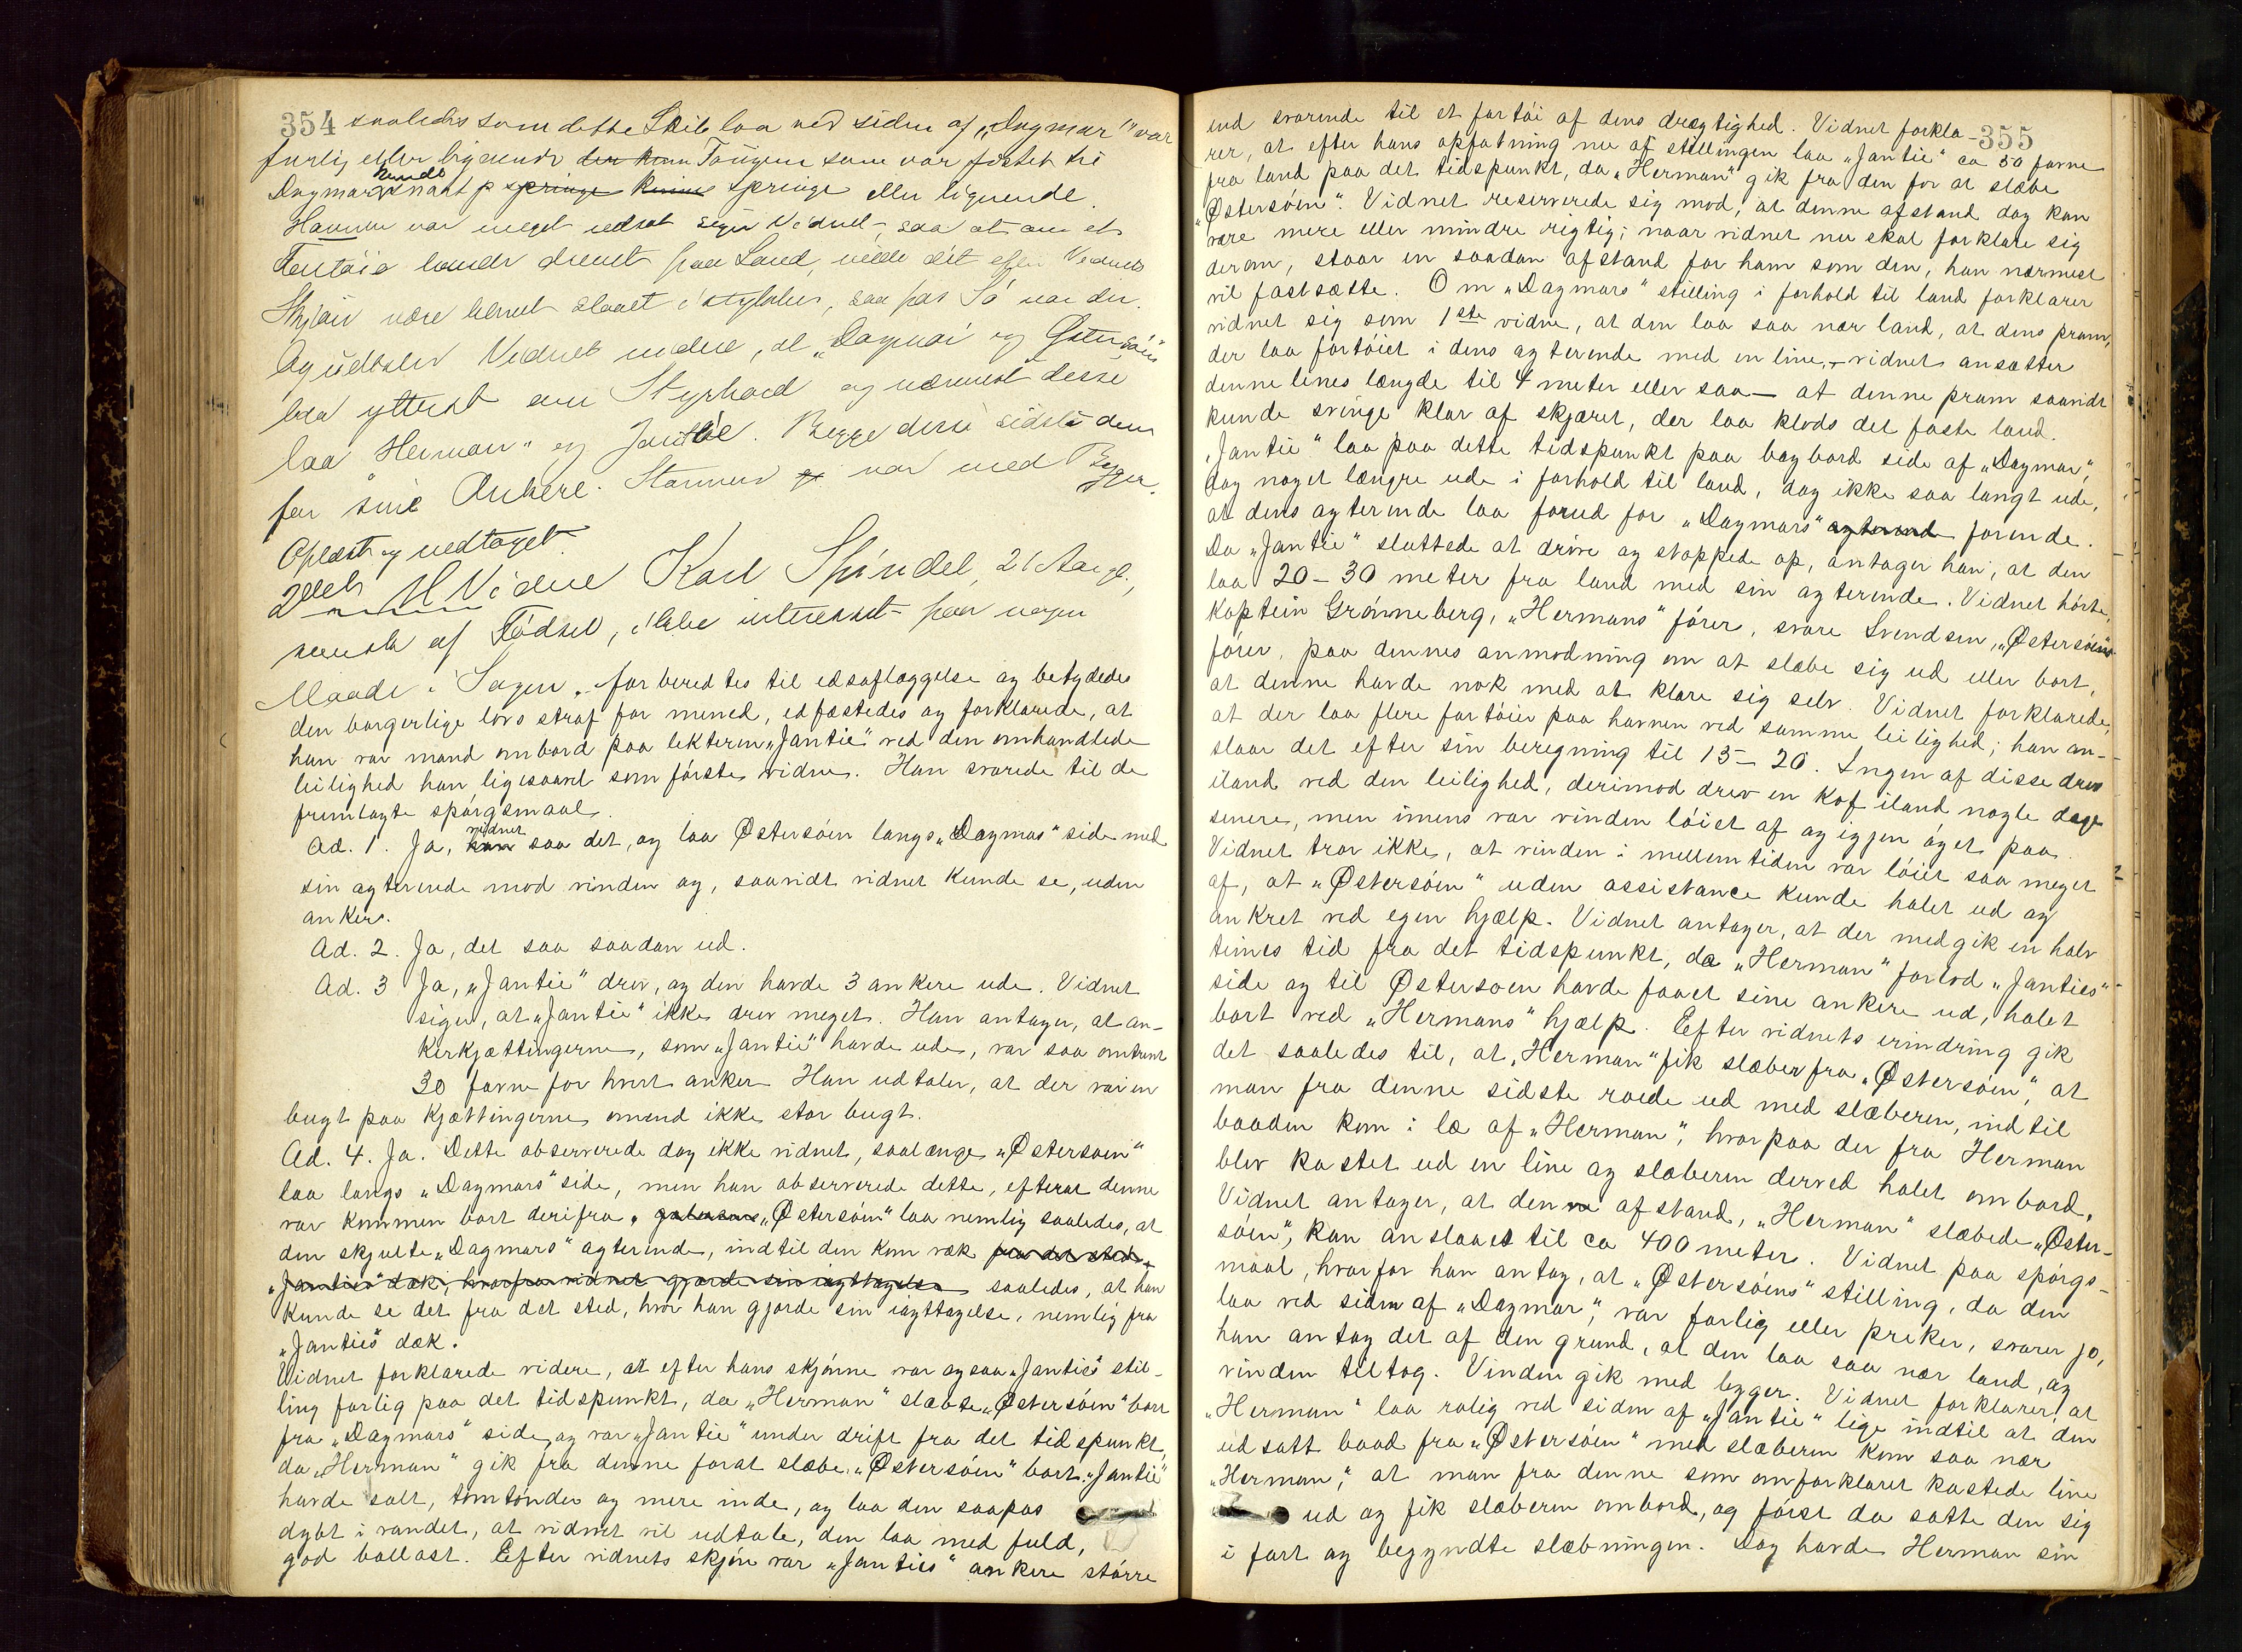 354 saaledes som dette Skib laa ved siden af „Dagmar" var
farlig eller lignende Tougene som var fæstet til
Dagmar kunde snart springe springe eller lignende.
Havnen var meget udsat siger Vidnet, saa at om et
Fartøie lande drevet paa Land, vilde det efter Vidnets
Skjøn være blevet slaaet i stykker, saa høi Sø var der.
Og udtaler Vidnet videre, at „Dagmar og Østersøen"
laa ytterst om Styrbord og nærmest disse
laa „Herman" og Jantie. Begge disse sidste dem
for sine Ankere. Stormen var med Bygger.
Oplæst og vedtaget.
2det Vidne Karl Spindel, 21 Aar gl.,
svensk af Fødsel, ikke interesseret paa nogen
Maade i Sagen, forberedtes til edsaflæggelse og betydedes
den borgerlige lovs straf for mened, edfæstedes og forklarede, at
han var mand ombord paa lekteren „Jantie" ved den omhandlede
leilighed han ligesaavel som første vidne. Han svarede til de
fremlagte spørgsmaal.
Ad. 1. Ja, han vidnet saa det, og laa Østersøen langs „Dagmas" side med
sin agterende mod vinden og, saavidt vidnet kunde se, uden
ankere.
Ad. 2. Ja, det saa saadan ud.
Ad. 3 Ja, „Jantie" drev, og den havde 3 ankere ude. Vidnet
siger, at „Jantie" ikke drev meget. Han antager, at an-
kerkjættingerne, som „Jantie" havde ude, var saa omtrent
30 favne for hvert anker Han udtaler, at der var en
bugt paa kjættingerne omend ikke stor bugt.
Ad. 4. Ja. Dette observerede dog ikke vidnet, saalænge „Østersøen"
laa langs „Dagmars" side, men han observerede dette, efterat denne
var kommen bort derifra, „Østersøen" laa nemlig saaledes, at
den skjulte „Dagmars" agterende, indtil den kom væk fra det sted,
„Janties" dæk, hvorfra vidnet gjorde sin iagttagelse saaledes, at han
kunde se det fra det sted, hvor han gjorde sin iagttagelse, nemlig fra
„Janties" dæk.
Vidnet forklarede videre, at efter hans skjønne var ogsaa „Janties" stil-
ling farlig paa det tidspunkt, da „Herman" slæbte „Østersøen" bort
fra „Dagmars" side, og var „Jantie" under drift fra det tidspunkt,
da „Herman" gik fra denne forat slæbe „Østersøen" bort. „Jantie"
havde salt, tomtønder og mere inde, og laa den saapas
dybt i vandet, at vidnet vil udtale, den laa med fuld,
god ballast. Efter vidnets skjøn var „Janties" ankere større
355
end svarende til et fartøi af dens drægtighed. Vidnet forkla-
rer, at efter hans opfatning nu af stillingen laa „Jantie" ca 50 favne
fra land paa det tidspunkt, da „Herman" gik fra den for at slæbe
„Østersøen". Vidnet reserverede sig mod, at denne afstand dog kan
være mere eller mindre rigtig; naar vidnet nu skal forklare sig
derom, staar en saadan afstand for ham som den, han nærmest
vil fastsætte. Om „Dagmars" stilling i forhold til land forklarer
vidnet sig som 1ste vidne, at den laa saa nær land, at dens pram,
der laa fortøiet i dens agterende med en line, – vidnet ansætter
denne lines længde til 4 meter eller saa – at denne pram saavidt
kunde svinge klar af skjæret, der laa klods det faste land.
„Jantie" laa paa dette tidspunkt paa bagbord side af „Dagmar",
dog noget længre ude i forhold til land, dog ikke saa langt ude,
at dens agterende laa forud for „Dagmars" agterende forende.
Da „Jantie" sluttede at drive og stoppede op, antager han, at den
laa 20–30 meter fra land med sin agterende. Vidnet hørte,
kaptein Grønneberg, „Hermans" fører, svare Svendsen, „Østersøens"
fører, paa dennes anmodning om at slæbe sig ud eller bort,
at denne havde nok med at klare sig selv. Vidnet forklarede,
at der laa flere fartøier paa havnen ved samme leilighed; han an-
slaar det efter sin beregning til 15–20. Ingen af disse drev
iland ved den leilighed, derimod drev en Kof iland nogle dage
senere, men imens var vinden løiet af og igjen øget paa.
Vidnet tror ikke, at vinden i mellemtiden var løiet saa meget
af, at „Østersøen" uden assistance kunde halet ud og
ankret ved egen hjælp. Vidnet antager, at der medgik en halv
times tid fra det tidspunkt, da „Herman" forlod „Janties"
side og til Østersøen havde faaet sine ankere ud, halet
bort ved „Hermans" hjælp. Efter vidnets erindring gik
det saaledes til, at „Herman" fik slæber fra „Østersøen", at
man fra denne sidste roede ud med slæberen, indtil
baaden kom i læ af „Herman", hvorpaa der fra Herman
blev kastet ud en line og slæberen derved halet ombord.
Vidnet antager, at denne afstand, „Herman" slæbede „Øster-
søen", kan anslaaes til ca 400 meter. Vidnet paa spørgs-
maal, hvorfor han antog, at „Østersøens" stilling, da den
laa ved siden af „Dagmar", var farlig eller prekær, svarer jo,
han antog det af den grund, at den laa saa nær land, og
vinden tiltog. Vinden gik med bygger. Vidnet forklarer, at
„Herman" laa rolig ved siden af „Jantie" lige indtil at den
udsatt baad fra „Østersøen" med slæberen kom saa nær
„Herman", at man fra denne som omforklaret kastede line
ud og fik slæberen ombord, og først da satte den sig
i fart og begyndte slæbningen. Dog havde Herman sin